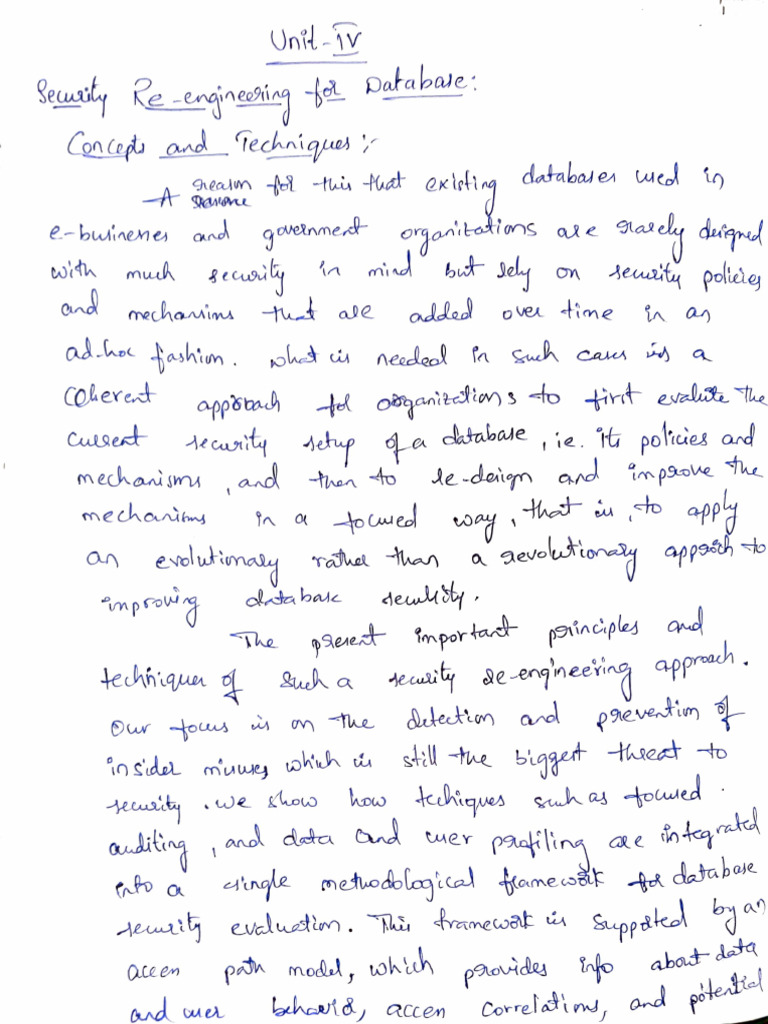 Unit-IV
Security Re-engineering for Database:
Concepts and Techniques:-
A reason for this that existing databases used in
e-businesses and government organizations are rarely designed
with much security in mind but rely on security policies
and mechanisms that are added over time in an
ad-hoc fashion. What is needed in such cases is a
coherent approach for organizations to first evalute the
current security setup of a database, ie. its policies and
mechanisms, and then to re-design and improve the
mechanisms in a focused way, that is, to apply
an evolutionary rather than a revolutionary approch to
improving database security.
The present important principles and
techniques of such a security re-engineering approach.
Our focus is on the detection and prevention of
insider misuses which is still the biggest threat to
security. We show how techiques such as focused
auditing, and data and user profiling are integrated
into a single methodological framework for database
security evaluation. This framework is supported by an
access path model, which provides info about data
and user behavior, access correlations, and potential